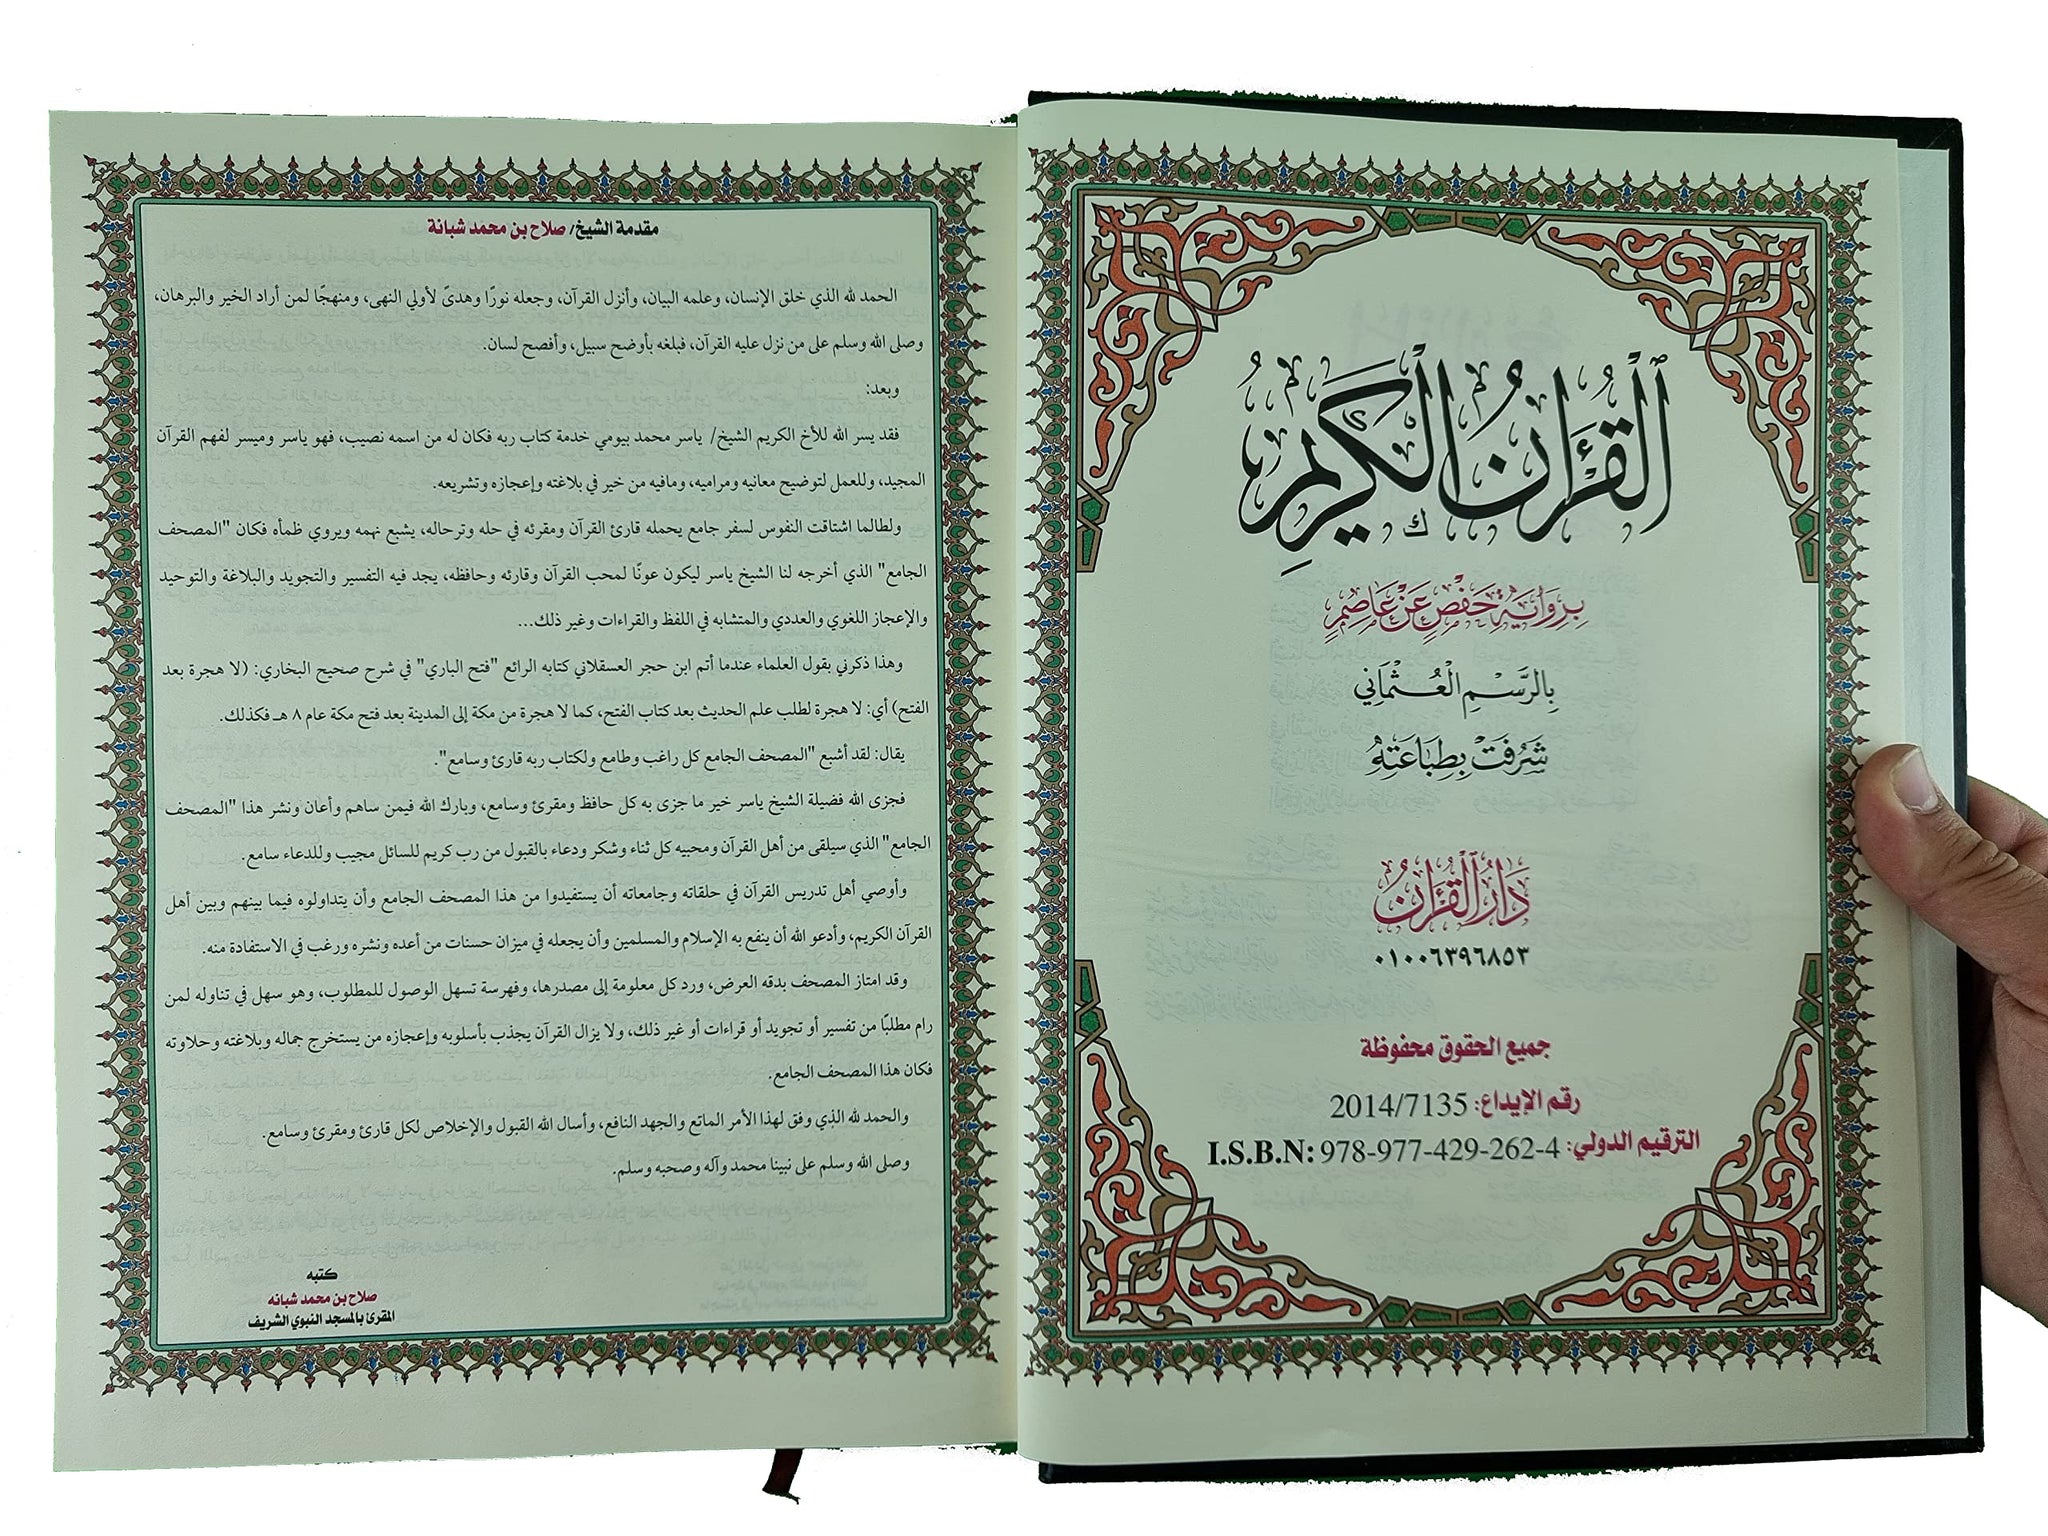 ٱلْقُرْءَانُ ٱلْكَرِيمُ
بِرِوَايَةِ حَفْصٍ عَنْ عَاصِمٍ
بِالرَّسْمِ الْعُثْمَانِي
شَرُفَتْ بِطِبَاعَتِهِ
دَارُ الْقُرْءَانِ
٠١٠٠٦٣٩٦٨٥٣
جميع الحقوق محفوظة
رقم الإيداع: 2014/7135
الترقيم الدولي: I.S.B.N: 978-977-429-262-4
مقدمة الشيخ/ صلاح بن محمد شبانة
الحمد لله الذي خلق الإنسان، وعلمه البيان، وأنزل القرآن، وجعله نورًا وهدىً لأولي النهى، ومنهجًا لمن أراد الخير والبرهان،
وصلى الله وسلم على من نزل عليه القرآن، فبلغه بأوضح سبيل، وأفصح لسان.
وبعد:
فقد يسر الله للأخ الكريم الشيخ/ ياسر محمد بيومي خدمة كتاب ربه فكان له من اسمه نصيب، فهو ياسر وميسر لفهم القرآن
المجيد، وللعمل لتوضيح معانيه ومراميه، ومافيه من خير في بلاغته وإعجازه وتشريعه.
ولطالما اشتاقت النفوس لسفر جامع يحمله قارئ القرآن ومقرئه في حله وترحاله، يشبع نهمه ويروي ظمأه فكان "المصحف
الجامع" الذي أخرجه لنا الشيخ ياسر ليكون عونًا لمحب القرآن وقارئه وحافظه، يجد فيه التفسير والتجويد والبلاغة والتوحيد
والإعجاز اللغوي والعددي والمتشابه في اللفظ والقراءات وغير ذلك...
وهذا ذكرني بقول العلماء عندما أتم ابن حجر العسقلاني كتابه الرائع "فتح الباري" في شرح صحيح البخاري: (لا هجرة بعد
الفتح) أي: لا هجرة لطلب علم الحديث بعد كتاب الفتح، كما لا هجرة من مكة إلى المدينة بعد فتح مكة عام ٨ هـ فكذلك.
يقال: لقد أشبع "المصحف الجامع كل راغب وطامع ولكتاب ربه قارئ وسامع".
فجزى الله فضيلة الشيخ ياسر خير ما جزى به كل حافظ ومقرئ وسامع، وبارك الله فيمن ساهم وأعان ونشر هذا "المصحف
الجامع" الذي سيلقى من أهل القرآن ومحبيه كل ثناء وشكر ودعاء بالقبول من رب كريم للسائل مجيب وللدعاء سامع.
وأوصي أهل تدريس القرآن في حلقاته وجامعاته أن يستفيدوا من هذا المصحف الجامع وأن يتداولوه فيما بينهم وبين أهل
القرآن الكريم، وأدعو الله أن ينفع به الإسلام والمسلمين وأن يجعله في ميزان حسنات من أعده ونشره ورغب في الاستفادة منه.
وقد امتاز المصحف بدقه العرض، ورد كل معلومة إلى مصدرها، وفهرسة تسهل الوصول للمطلوب، وهو سهل في تناوله لمن
رام مطلبًا من تفسير أو تجويد أو قراءات أو غير ذلك، ولا يزال القرآن يجذب بأسلوبه وإعجازه من يستخرج جماله وبلاغته وحلاوته
فكان هذا المصحف الجامع.
والحمد لله الذي وفق لهذا الأمر الماتع والجهد النافع، وأسال الله القبول والإخلاص لكل قارئ ومقرئ وسامع.
وصلى الله وسلم على نبينا محمد وآله وصحبه وسلم.
كتبه
صلاح بن محمد شبانه
المقرئ بالمسجد النبوي الشريف